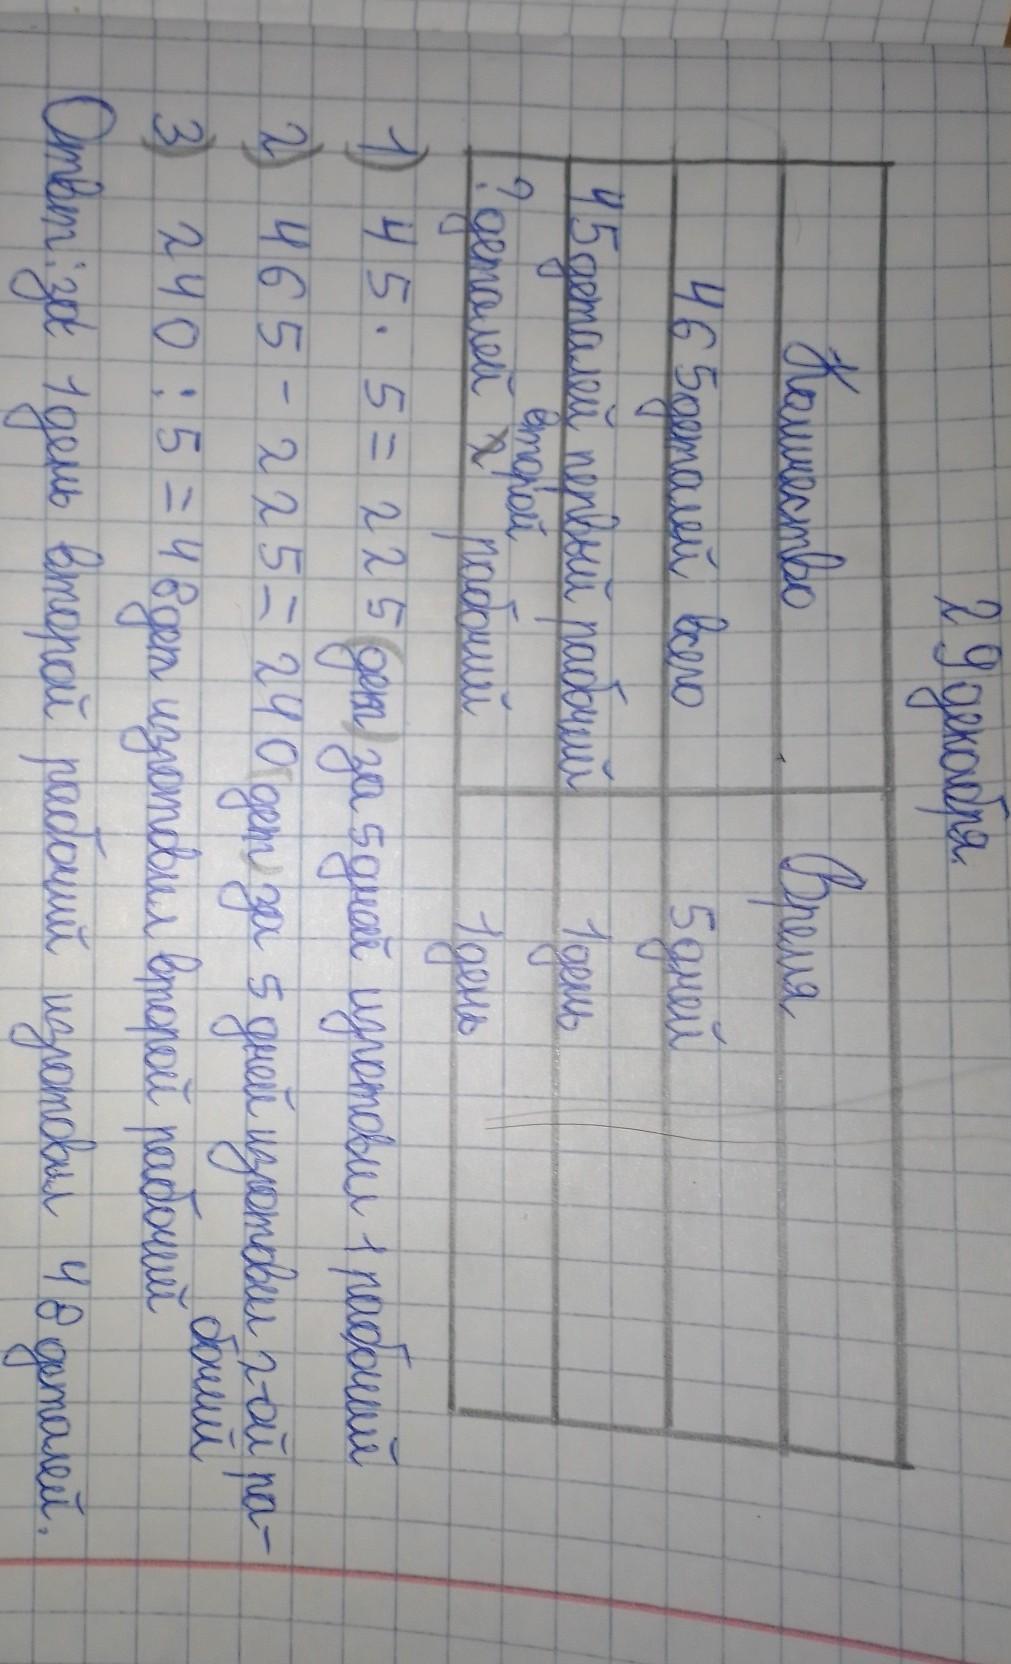 29 декабря.
Количество Время
465 деталей всего 5 дней
45 деталей первый рабочий 1 день
второй
? деталей рабочий 1 день
1) 45 · 5 = 225 (дет) за 5 дней изготовил 1 рабочий
2) 465 - 225 = 240 (дет) за 5 дней изготовил 2-ой ра-
бочий
3) 240 : 5 = 48 дет изготовил второй рабочий
Ответ: за 1 день второй рабочий изготовил 48 деталей.